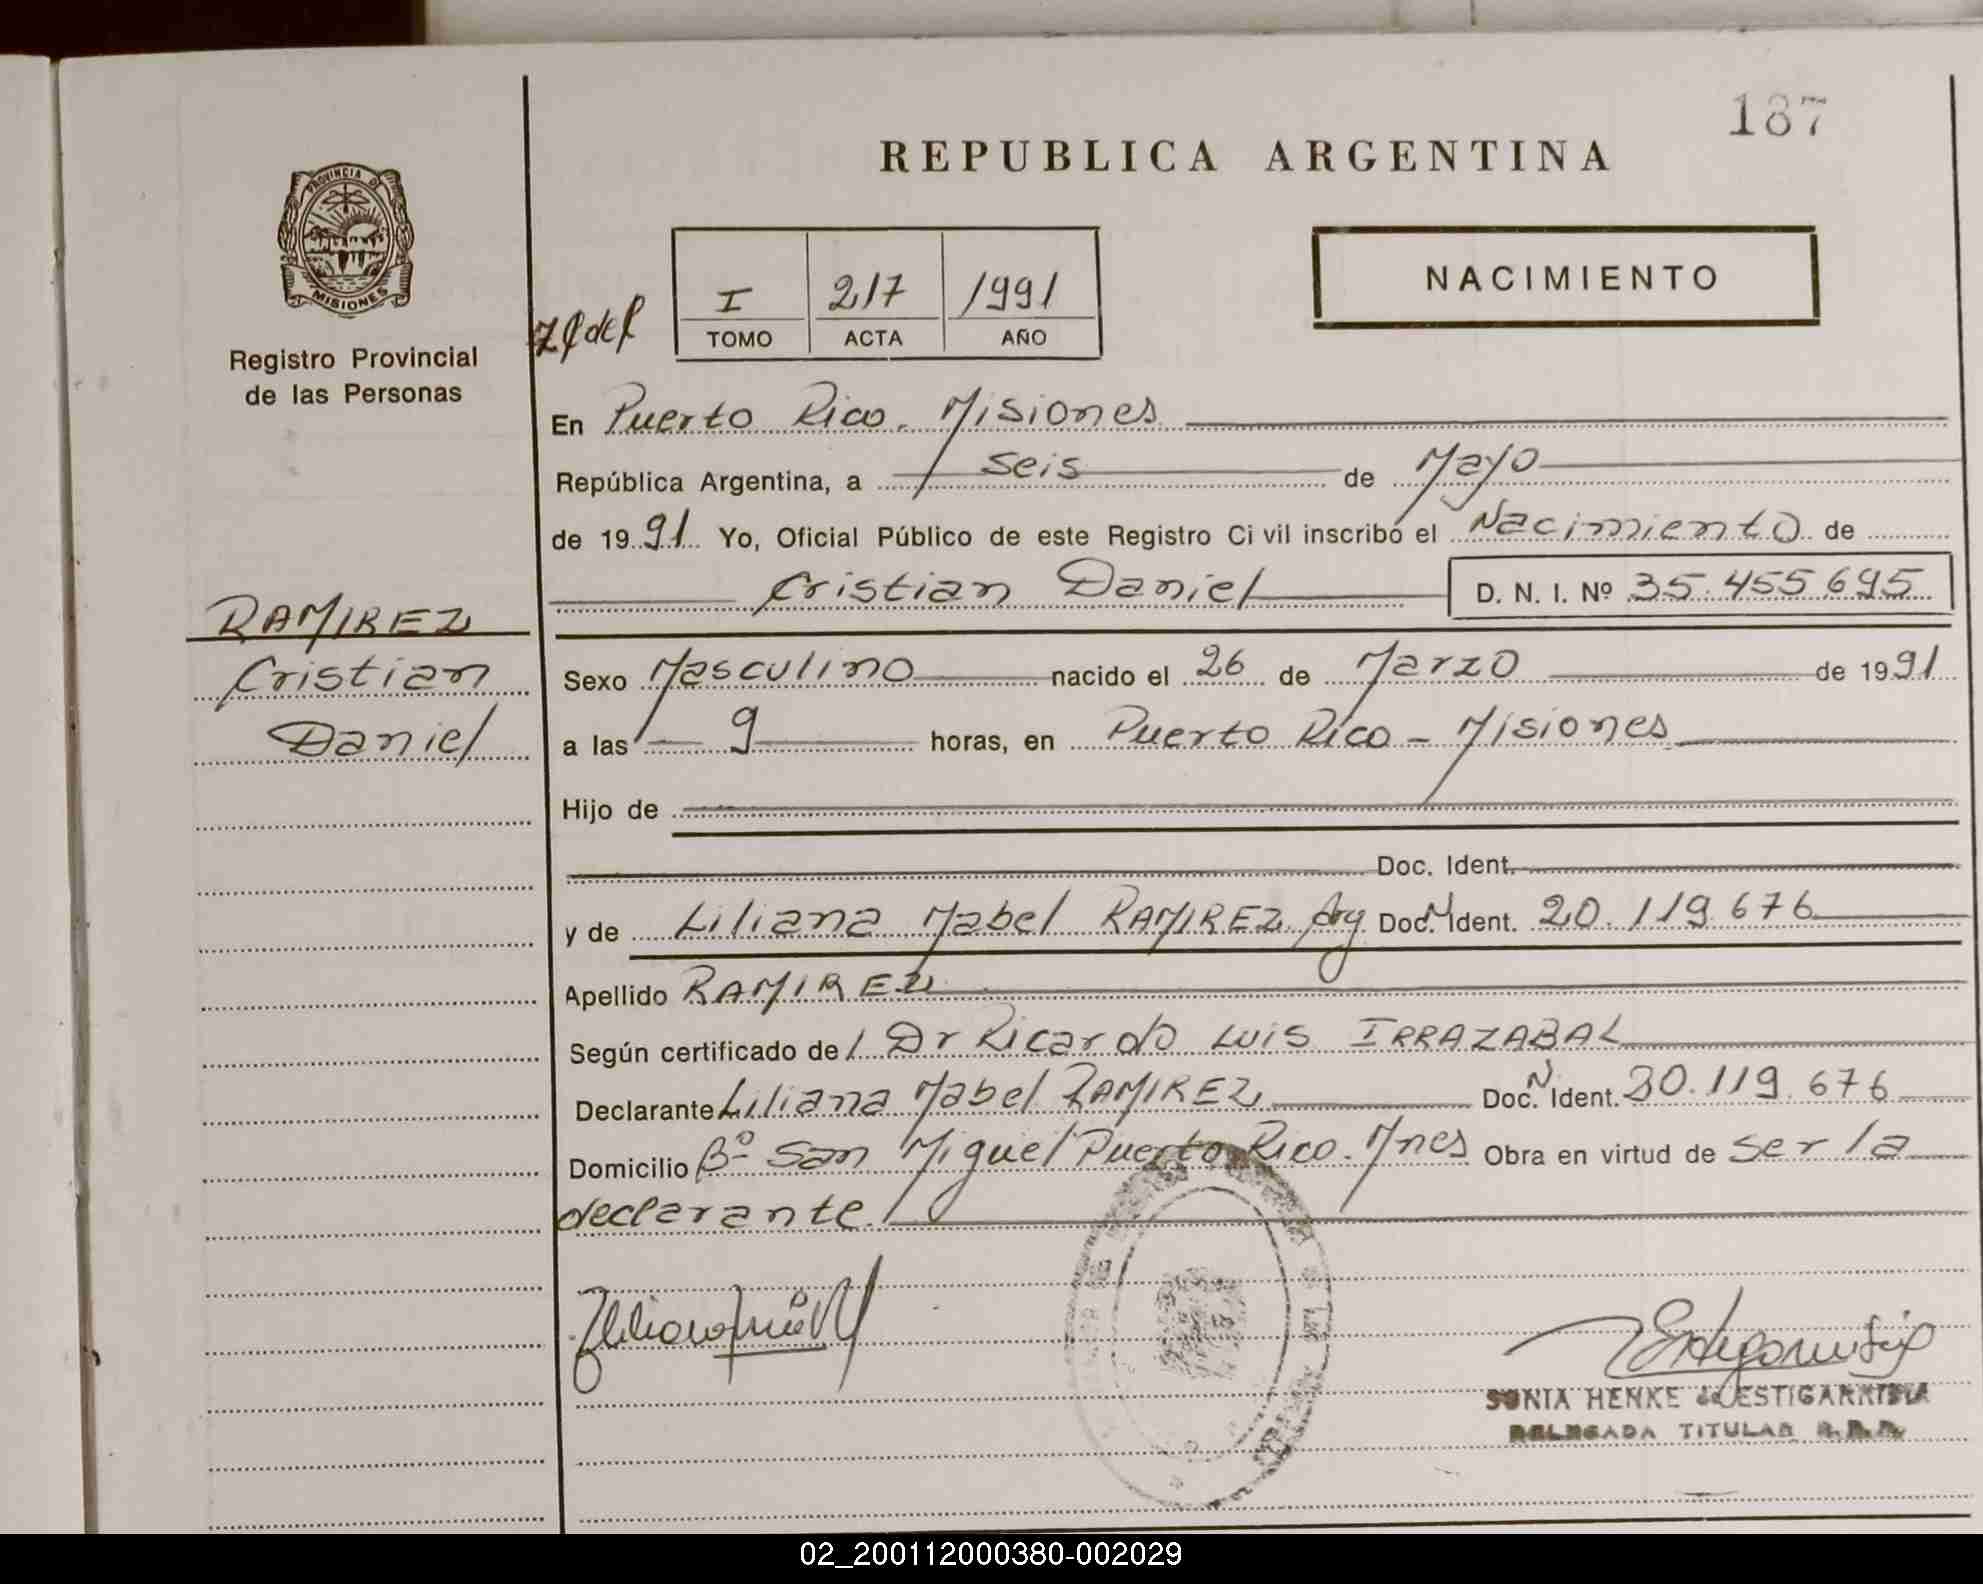 187
REPUBLICA ARGENTINA
PROVINCIA DE
MISIONES
Registro Provincial
de las Personas
I 217 1991
TOMO ACTA AÑO
NACIMIENTO
En Puerto Rico. Misiones
República Argentina, a seis de Mayo
de 1991 Yo, Oficial Público de este Registro Civil inscribo el Nacimiento de
Cristian Daniel D. N. I. Nº 35.455.695
RAMIREZ
Cristian
Daniel
Sexo Masculino nacido el 26 de Marzo de 1991
a las 9 horas, en Puerto Rico - Misiones
Hijo de
Doc. Ident.
y de Liliana Mabel RAMIREZ Arg. Doc. N Ident. 20.119.676
Apellido RAMIREZ
Según certificado del Dr Ricardo Luis IRRAZABAL
Declarante Liliana Mabel RAMIREZ Doc. N Ident. 20.119.676
Domicilio Bº San Miguel Puerto Rico. Mnes Obra en virtud de ser la
declarante.
SONIA HENKE de ESTIGARRIBIA
DELEGADA TITULAR R.P.P.
02_200112000380-002029